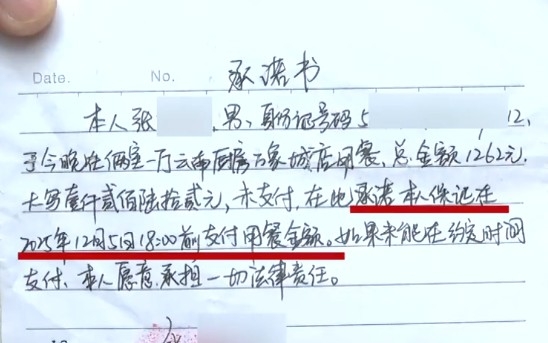 Date. No. 承诺书
本人张 , 男、身份证号码5 12,
于今晚在俩室一厅云南厨房万象城店用餐、总金额1262元.
大写壹仟贰佰陆拾贰元,未支付,在此承诺本人保证在
2025年12月5日18:00前支付用餐金额。如果未能在约定时间
支付、本人愿意承担一切法律责任。